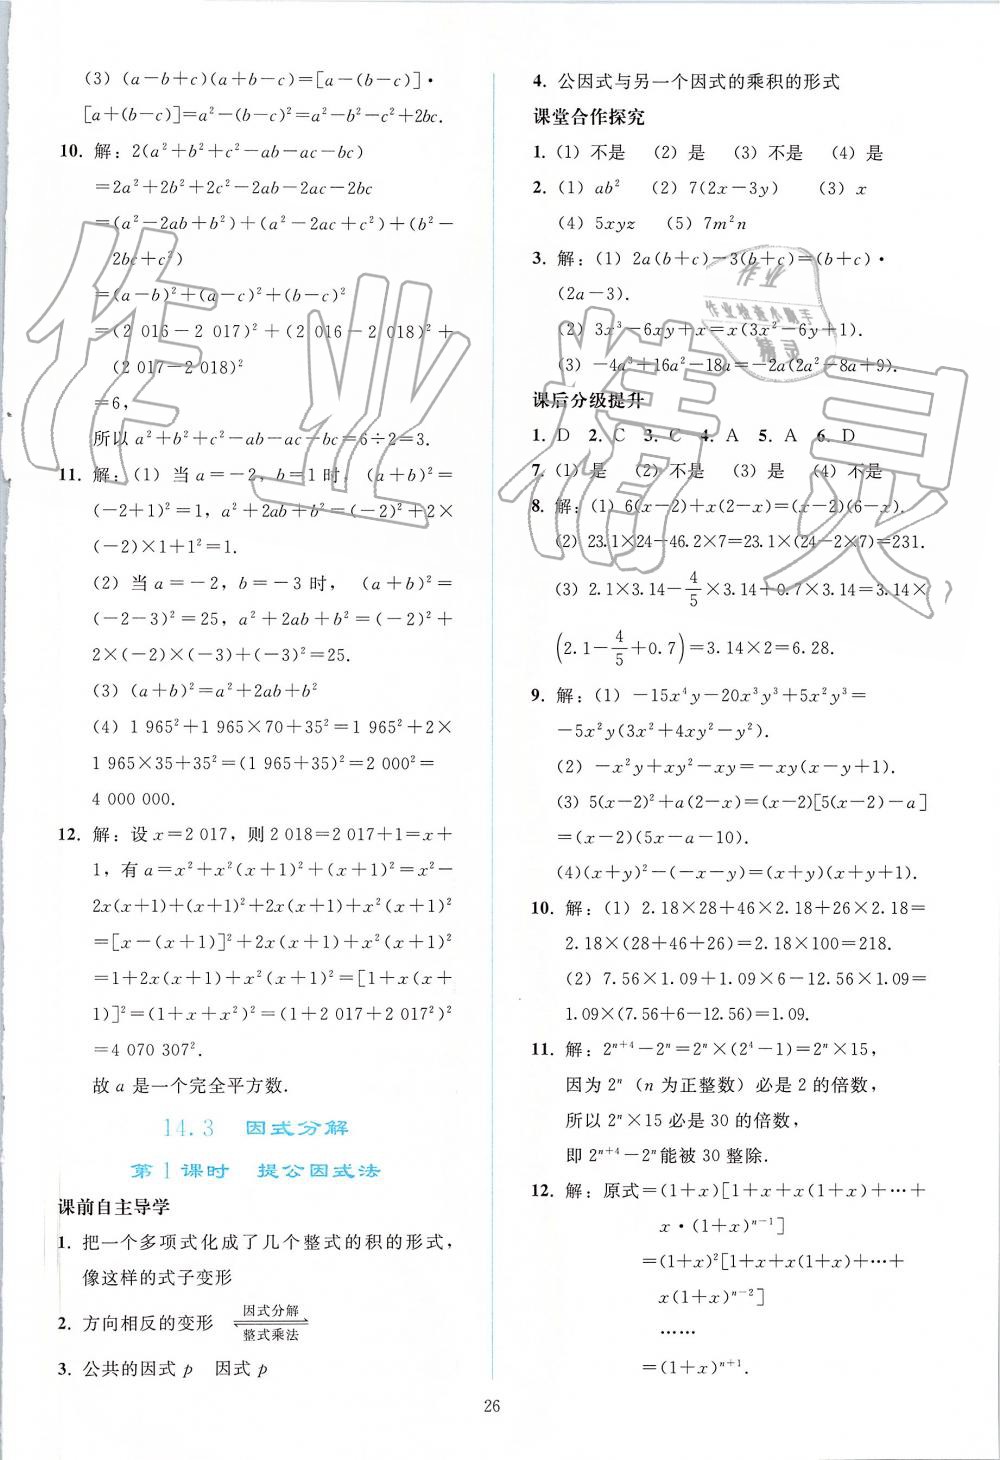 (3) (a-b+c)(a+b-c)=[a-(b-c)]·
[a+(b-c)]=a²-(b-c)²=a²-b²-c²+2bc.
10. 解:2(a²+b²+c²-ab-ac-bc)
=2a²+2b²+2c²-2ab-2ac-2bc
=(a²-2ab+b²)+(a²-2ac+c²)+(b²-
2bc+c²)
=(a-b)²+(a-c)²+(b-c)²
=(2 016-2 017)²+(2 016-2 018)²+
(2 017-2 018)²
=6,
所以 a²+b²+c²-ab-ac-bc=6÷2=3.
11. 解:(1) 当 a=-2,b=1 时, (a+b)²=
(-2+1)²=1,a²+2ab+b²=(-2)²+2×
(-2)×1+1²=1.
(2) 当 a=-2,b=-3 时, (a+b)²=
(-2-3)²=25,a²+2ab+b²=(-2)²+
2×(-2)×(-3)+(-3)²=25.
(3) (a+b)²=a²+2ab+b²
(4) 1 965²+1 965×70+35²=1 965²+2×
1 965×35+35²=(1 965+35)²=2 000²=
4 000 000.
12. 解:设 x=2 017,则 2 018=2 017+1=x+
1,有 a=x²+x²(x+1)²+(x+1)²=x²-
2x(x+1)+(x+1)²+2x(x+1)+x²(x+1)²
=[x-(x+1)]²+2x(x+1)+x²(x+1)²
=1+2x(x+1)+x²(x+1)²=[1+x(x+
1)]²=(1+x+x²)²=(1+2 017+2 017²)²
=4 070 307².
故 a 是一个完全平方数.
14.3 因式分解
第1课时 提公因式法
课前自主导学
1. 把一个多项式化成了几个整式的积的形式,
像这样的式子变形
2. 方向相反的变形 因式分解 ⇌ 整式乘法
3. 公共的因式 p 因式 p
4. 公因式与另一个因式的乘积的形式
课堂合作探究
1. (1) 不是 (2) 是 (3) 不是 (4) 是
2. (1) ab² (2) 7(2x-3y) (3) x
(4) 5xyz (5) 7m²n
3. 解:(1) 2a(b+c)-3(b+c)=(b+c)·
(2a-3).
(2) 3x³-6xy+x=x(3x²-6y+1).
(3) -4a³+16a²-18a=-2a(2a²-8a+9).
课后分级提升
1. D 2. C 3. C 4. A 5. A 6. D
7. (1) 是 (2) 不是 (3) 是 (4) 不是
8. 解:(1) 6(x-2)+x(2-x)=(x-2)(6-x).
(2) 23.1×24-46.2×7=23.1×(24-2×7)=231.
(3) 2.1×3.14-4/5×3.14+0.7×3.14=3.14×
(2.1-4/5+0.7)=3.14×2=6.28.
9. 解:(1) -15x⁴y-20x³y³+5x²y³=
-5x²y(3x²+4xy²-y²).
(2) -x²y+xy²-xy=-xy(x-y+1).
(3) 5(x-2)²+a(2-x)=(x-2)[5(x-2)-a]
=(x-2)(5x-a-10).
(4)(x+y)²-(-x-y)=(x+y)(x+y+1).
10. 解:(1) 2.18×28+46×2.18+26×2.18=
2.18×(28+46+26)=2.18×100=218.
(2) 7.56×1.09+1.09×6-12.56×1.09=
1.09×(7.56+6-12.56)=1.09.
11. 解:2ⁿ⁺⁴-2ⁿ=2ⁿ×(2⁴-1)=2ⁿ×15,
因为 2ⁿ (n 为正整数) 必是 2 的倍数,
所以 2ⁿ×15 必是 30 的倍数,
即 2ⁿ⁺⁴-2ⁿ能被 30 整除.
12. 解:原式=(1+x)[1+x+x(1+x)+⋯+
x·(1+x)ⁿ⁻¹]
=(1+x)²[1+x+x(1+x)+⋯+
x(1+x)ⁿ⁻²]
⋯⋯
=(1+x)ⁿ⁺¹.
26
作业精灵
作业
作业检查小助手
精灵